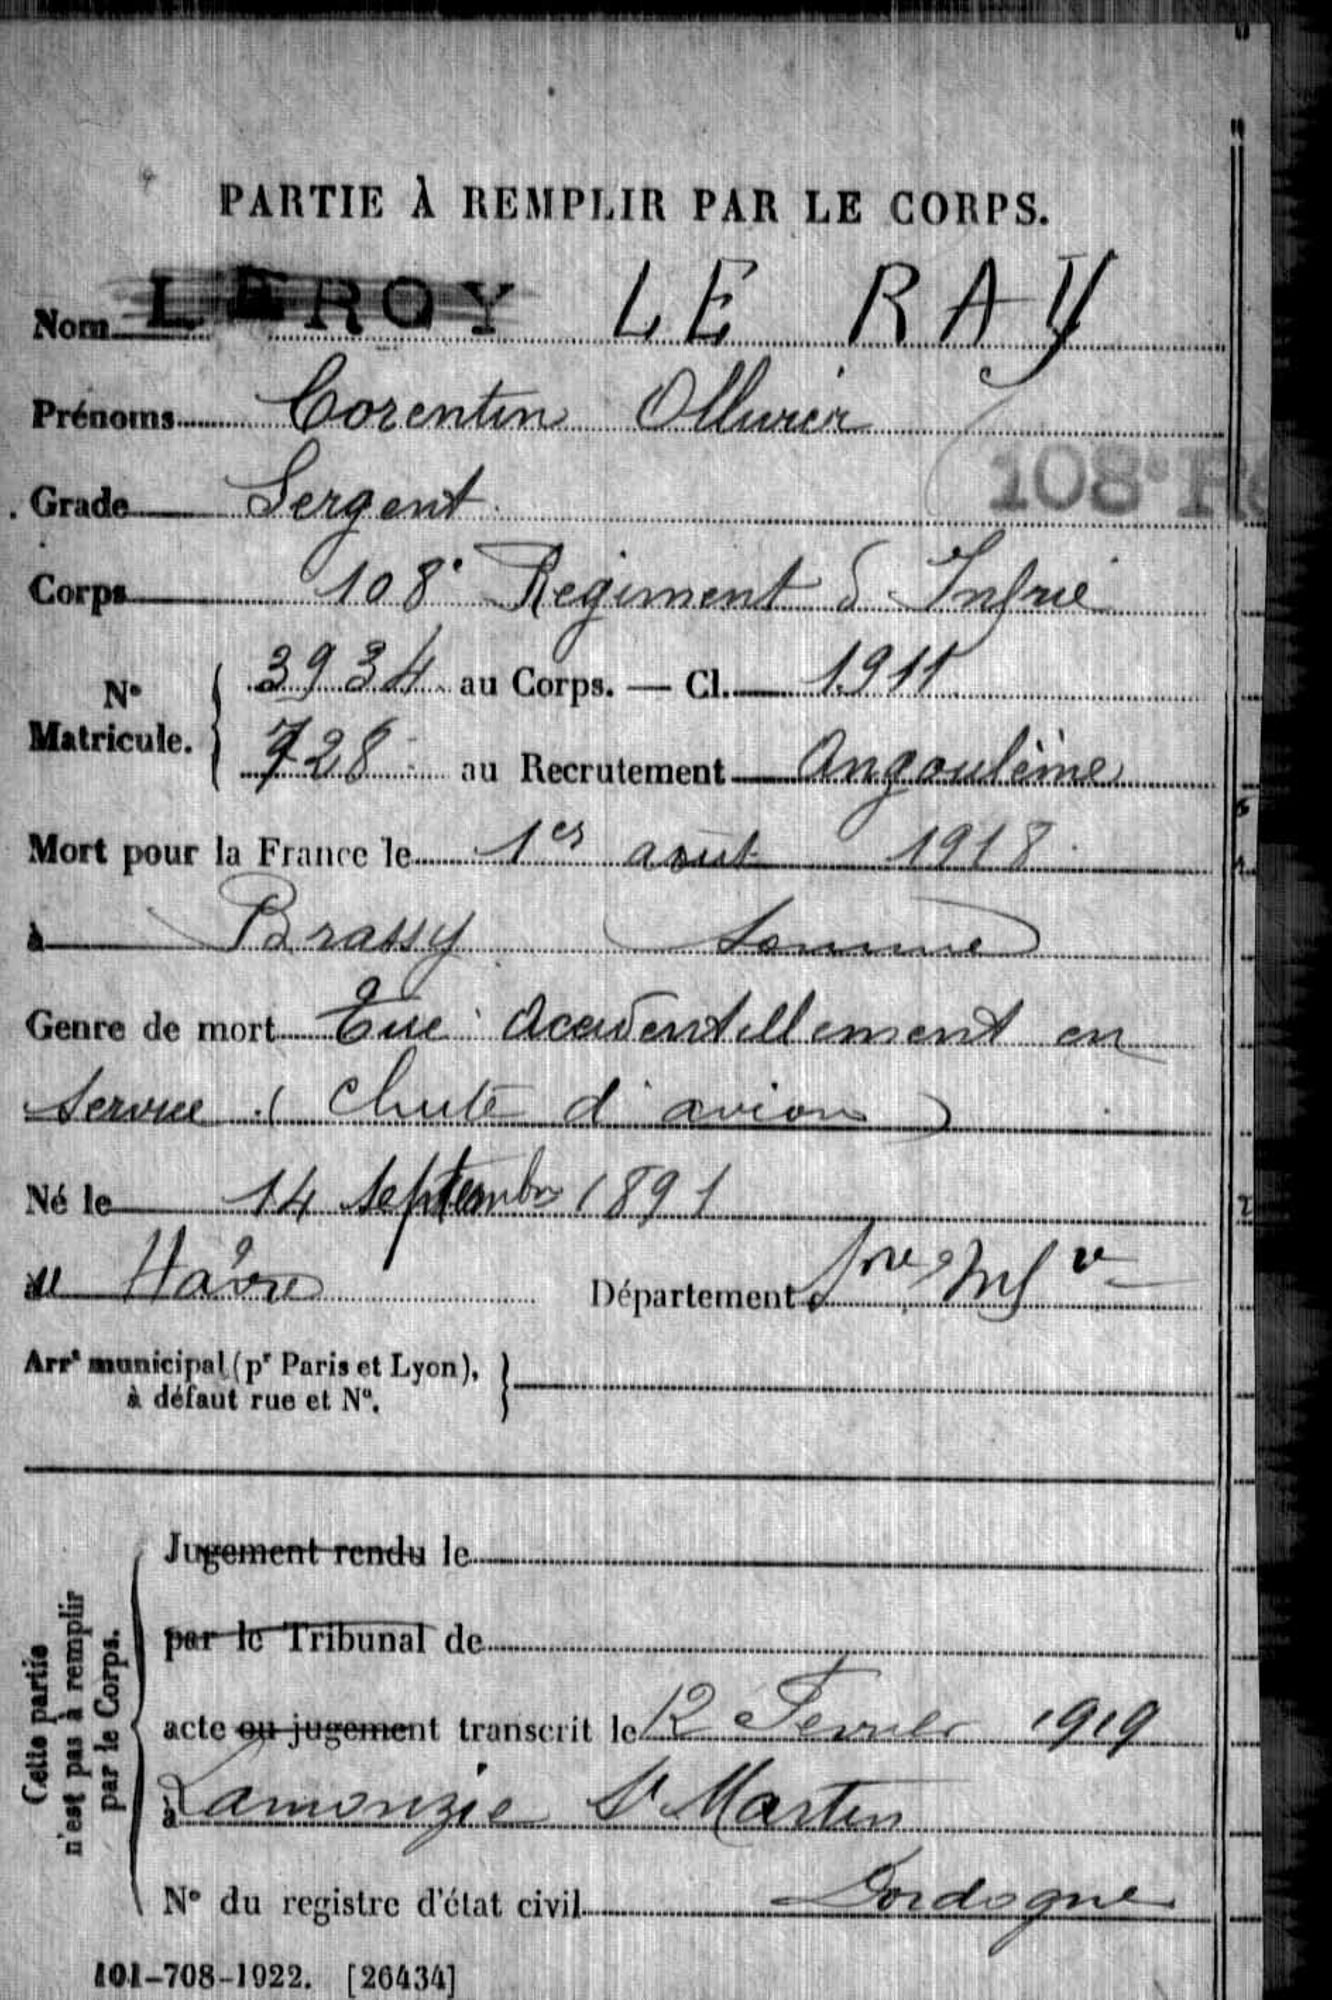 PARTIE À REMPLIR PAR LE CORPS.
Nom LEROY LE RAY
Prénoms Corentin Ollivier
108e Ré
Grade Sergent
Corps 108e Régiment d'Infrie
N° Matricule. 3934 au Corps. — Cl. 1911
728 au Recrutement Angoulême
Mort pour la France le 1er août 1918
à Brassy (Somme)
Genre de mort Tué Accidentellement en
Service (Chute d'avion)
Né le 14 Septembre 1891
Havre Département Sne Infre
Arrt municipal (pr Paris et Lyon),
à défaut rue et N°.
Cette partie
n'est pas à remplir
par le Corps.
Jugement rendu le
par le Tribunal de
acte ou jugement transcrit le 12 Fevrier 1919
à Lamonzie St Martin
N° du registre d'état civil Dordogne
101-708-1922. [26434]